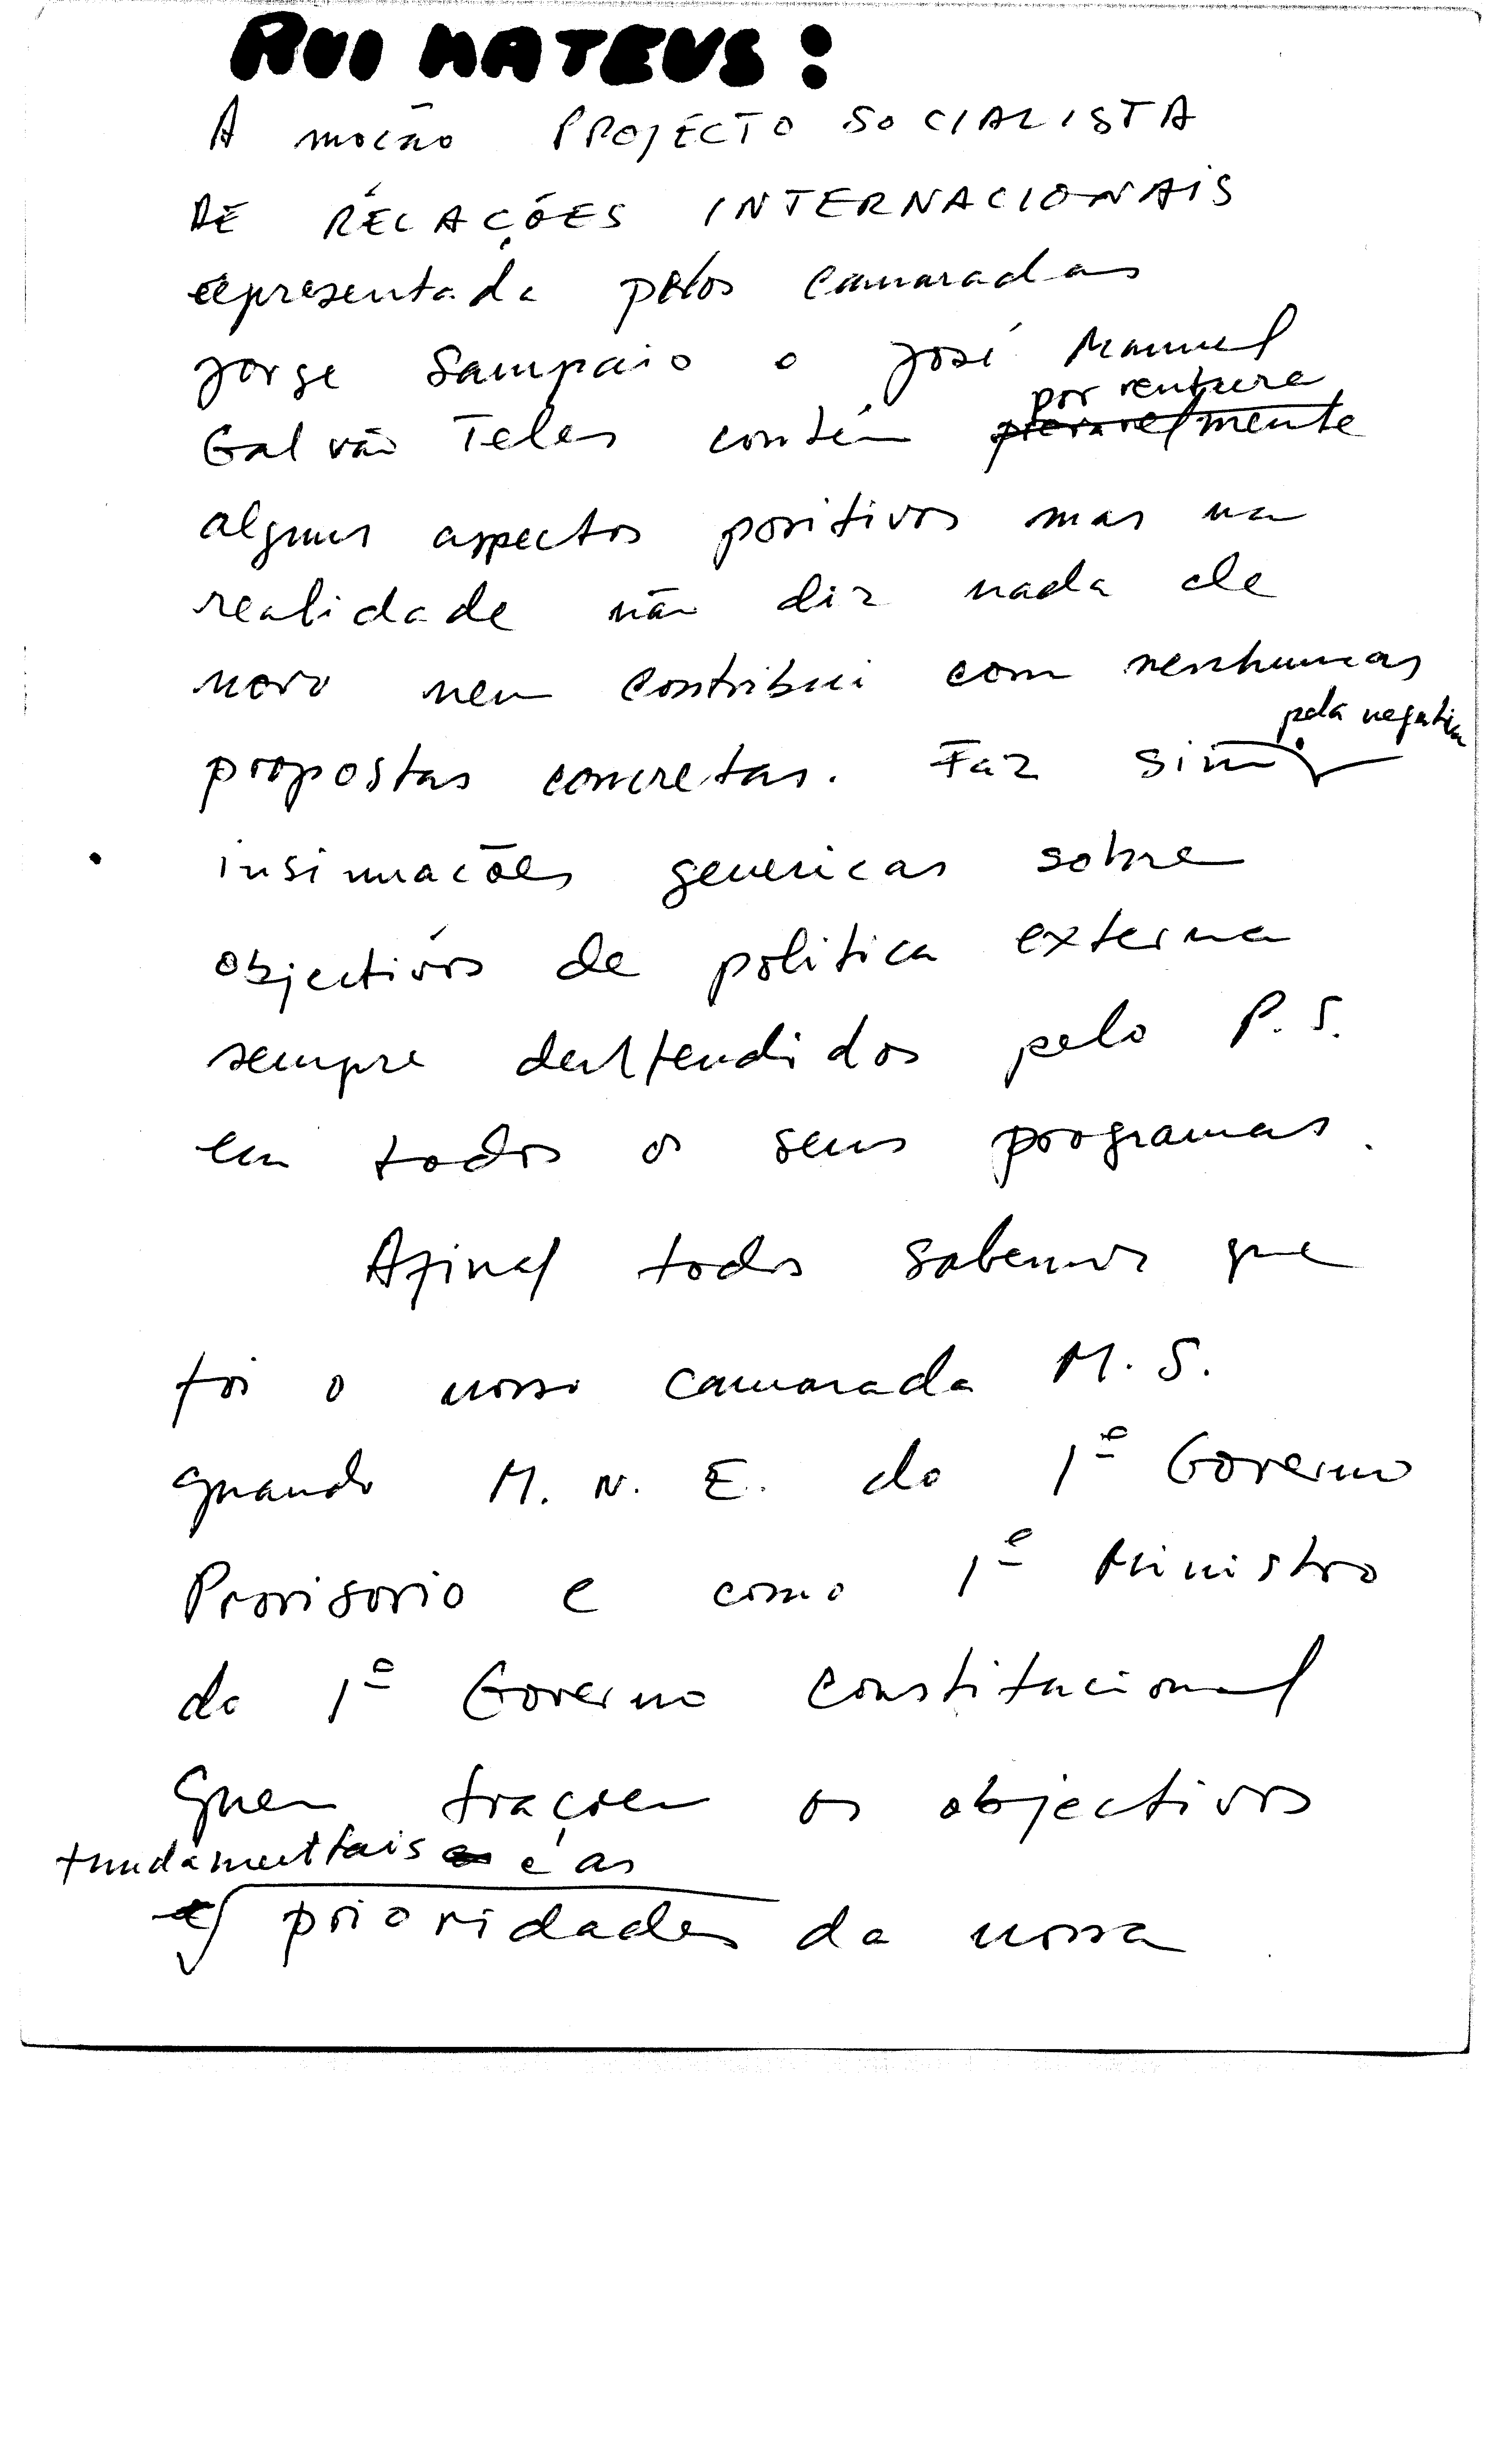 RUI MATEUS:
A moção PROJECTO SOCIALISTA
DE RELAÇÕES INTERNACIONAIS
apresentada pelos camaradas
Jorge Sampaio e José Manuel
por ventura
Galvão Teles contém provavelmente
alguns aspectos positivos mas na
realidade não diz nada de
novo nem contribui com nenhumas
pela negativa
propostas concretas. Faz sim
insinuações genericas sobre
objectivos de politica externa
sempre defendidos pelo P.S.
em todos os seus programas.
Afinal todos sabemos que
foi o nosso camarada M.S.
quando M.N.E. do 1º Governo
Provisorio e como 1º Ministro
do 1º Governo Constitucional
quem traçou os objectivos
fundamentais e as
prioridades da nossa